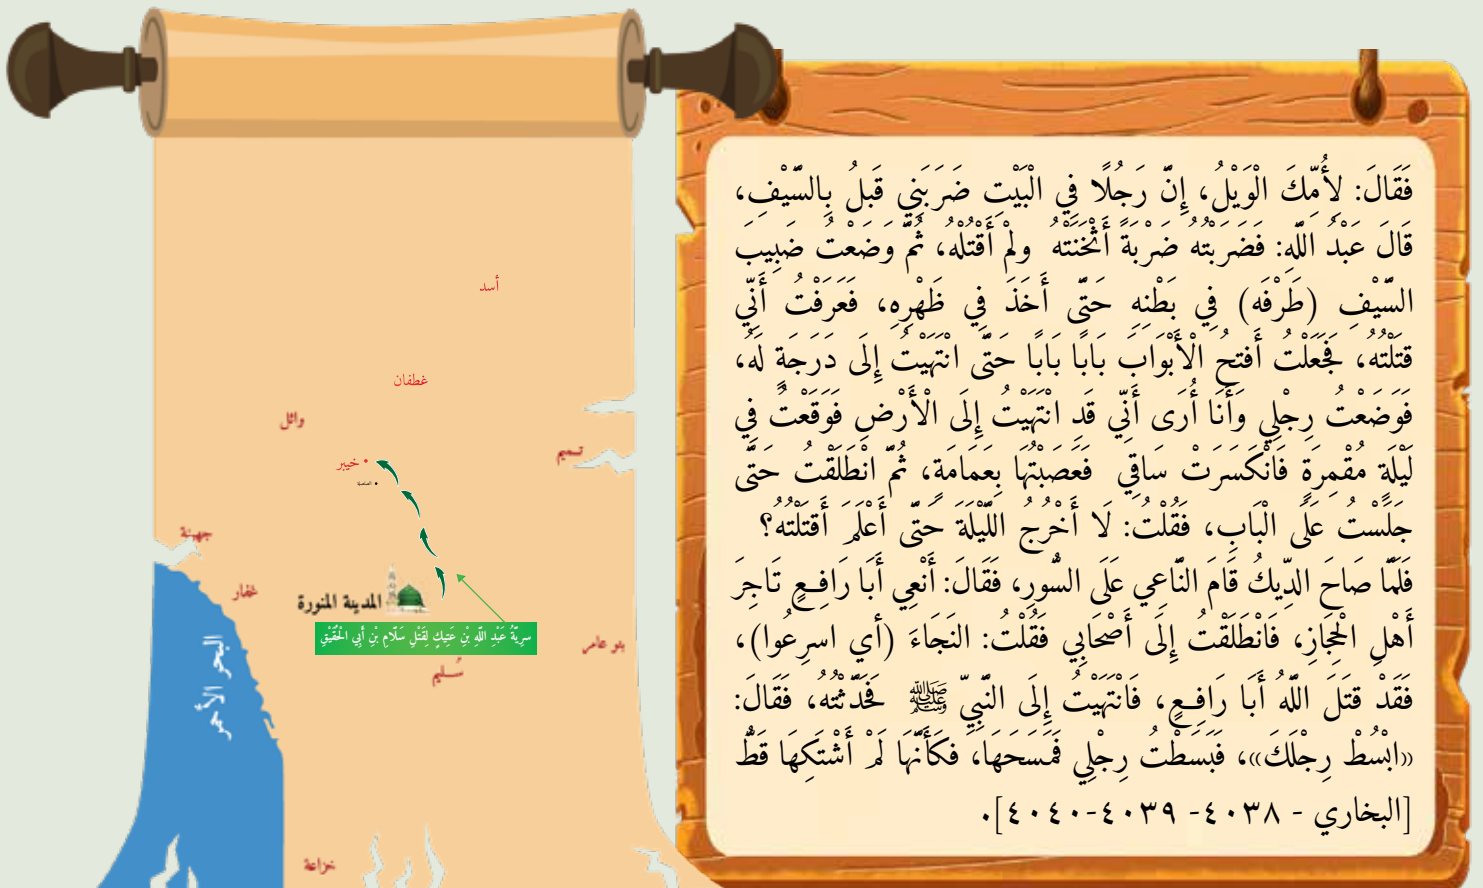 فَقَالَ: لِأُمِّكَ الْوَيْلُ، إِنَّ رَجُلًا فِي الْبَيْتِ ضَرَبَنِي قَبلُ بِالسَّيْفِ،
قَالَ عَبْدُ اللَّهِ: فَضَرَبْتُهُ ضَرْبَةً أَثْخَنَتْهُ ولمْ أَقْتُلْهُ، ثُمَّ وَضَعْتُ ضَبِيبَ
السَّيْفِ (طَرْفَه) فِي بَطْنِهِ حَتَّى أَخَذَ فِي ظَهْرِهِ، فَعَرَفْتُ أَنِّي
قتَلْتُهُ، فَجَعَلْتُ أَفتحُ الْأَبْوَابَ بَابًا بَابًا حَتَّى انْتَهَيْتُ إِلَى دَرَجَةٍ لَهُ،
فَوَضَعْتُ رِجْلِي وَأَنَا أُرَى أَنِّي قَدِ انْتَهَيْتُ إِلَى الْأَرْضِ فَوَقَعْتُ فِي
لَيْلَةٍ مُقْمِرَةٍ فَانْكَسَرَتْ سَاقِي فَعَصَبْتُهَا بِعَمَامَةٍ، ثُمَّ انْطَلَقْتُ حَتَّى
جَلَسْتُ عَلَى الْبَابِ، فَقُلْتُ: لَا أَخْرُجُ اللَّيْلَةَ حَتَّى أَعْلَمَ أَقتَلْتُهُ؟
فَلَمَّا صَاحَ الدِّيكُ قَامَ النَّاعِي عَلَى السُّورِ، فَقَالَ: أَنْعِي أَبَا رَافِعٍ تَاجِرَ
أَهْلِ الْحِجَازِ، فَانْطَلَقْتُ إِلَى أَصْحَابِي فَقُلْتُ: النَجَاءَ (أي اسرِعُوا)،
فَقَدْ قتَلَ اللَّهُ أَبَا رَافِعٍ، فَانْتَهَيْتُ إِلَى النَّبِيِّ ﷺ فَحَدَّثْتُهُ، فَقَالَ:
«ابْسُطْ رِجْلَكَ»، فَبَسَطْتُ رِجْلِي فَمَسَحَهَا، فكَأَنَّهَا لَمْ أَشْتَكِهَا قَطُّ
[البخاري - ٤٠٣٨- ٤٠٣٩-٤٠٤٠].
أسد
غطفان
وائل
تميم
خيبر
جهينة
غفار
المدينة المنورة
سريّةُ عَبْدِ اللَّهِ بْنِ عَتِيكٍ لِقَتْلِ سَلَّامِ بْنِ أَبِي الْحُقَيْقِ
بنو عامر
سُليم
البحر الأحمر
خزاعة